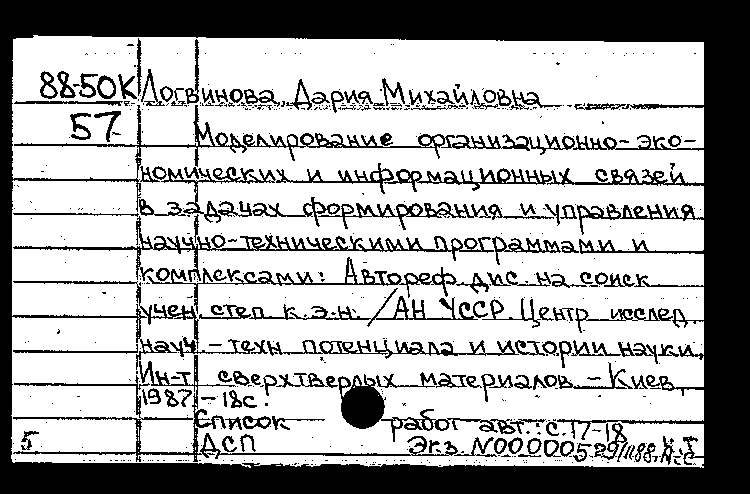 88-50К Логвинова, Дария Михайловна
57 Моделирование организационно-эко-
номических и информационных связей
в задачах формирования и управления
научно-техническими программами и
комплексами: Автореф. дис. на соиск
учен. степ. к.э.н. / АН УССР. Центр исслед.
науч.-техн потенциала и истории науки,
Ин-т сверхтвердых материалов. - Киев,
1987. - 18с.
Список работ авт.: с. 17-18
5 ДСП Экз. N000005